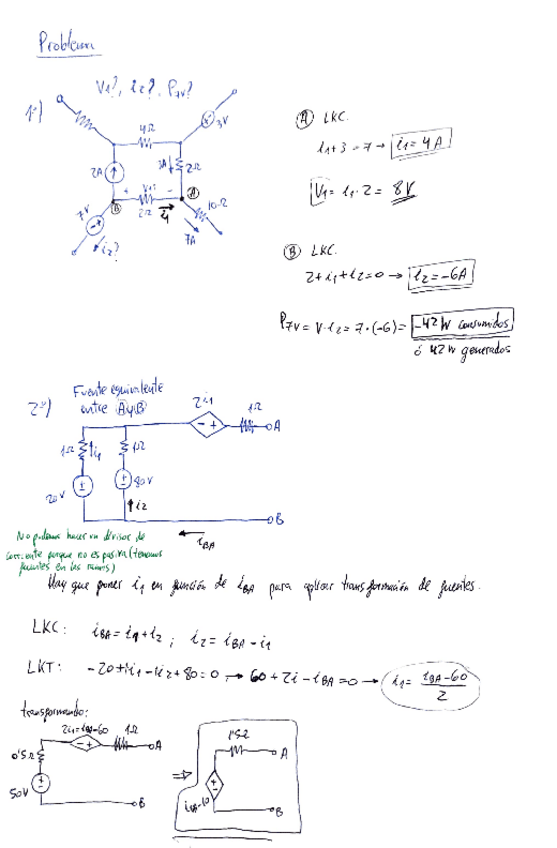 Problema
V1?, i2?, P7V?
1º)
4Ω
3V
2A
3A
2Ω
V1?
+ -
A
B
2Ω
i1
10Ω
7V
7A
i2?
A LKC.
i1+3=7 → i1=4A
V1=i1·2=8V
B LKC.
2+i1+i2=0 → i2=-6A
P7V=V·i2=7·(-6)= -42W consumidos
ó 42W generados
2º)
Fuente equivalente
entre A y B
2i1
1Ω
A
1Ω
i1
1Ω
20V
80V
i2
B
iBA
No podemos hacer un divisor de
corriente porque no es pasiva (tenemos
fuentes en las ramas)
Hay que poner i1 en función de iBA para aplicar transformación de fuentes.
LKC: iBA=i1+i2; i2=iBA-i1
LKT: -20+1i1-1i2+80=0 → 60+2i-iBA=0 → i1= iBA-60
2
transformando:
2i1=iBA-60
1Ω
A
0'5Ω
50V
B
⇒
1'5Ω
A
iBA-10
B